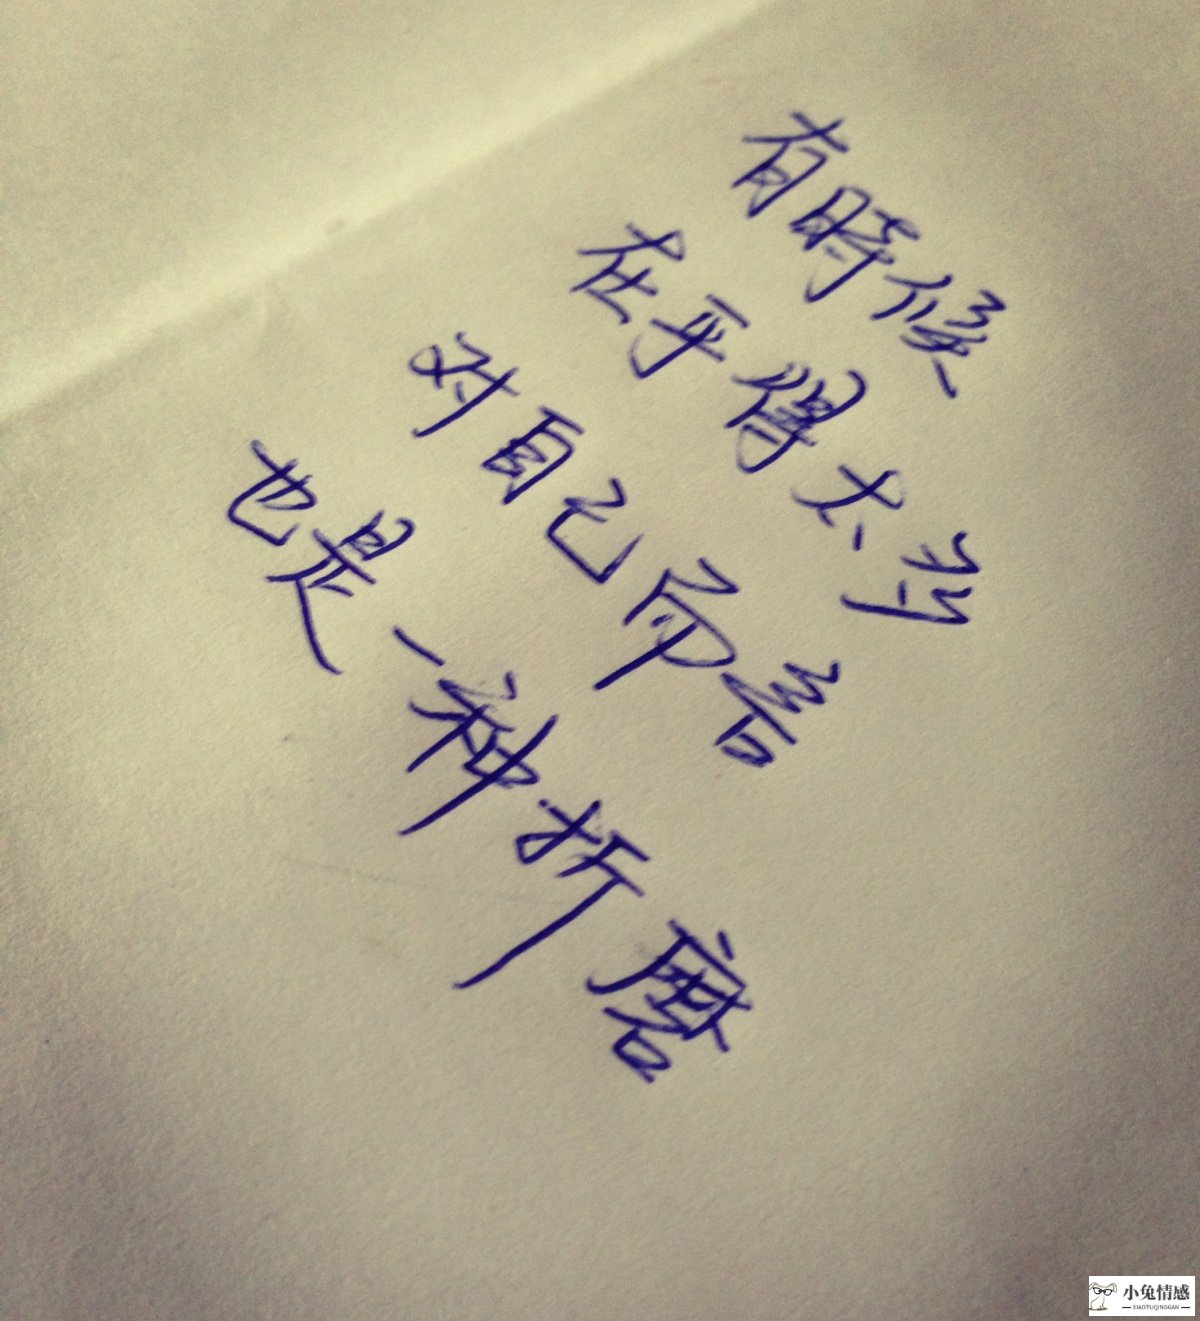 有時候
在乎得太多
对自己而言
也是一种折磨
小兔情感
XIAOTUQINGGAN